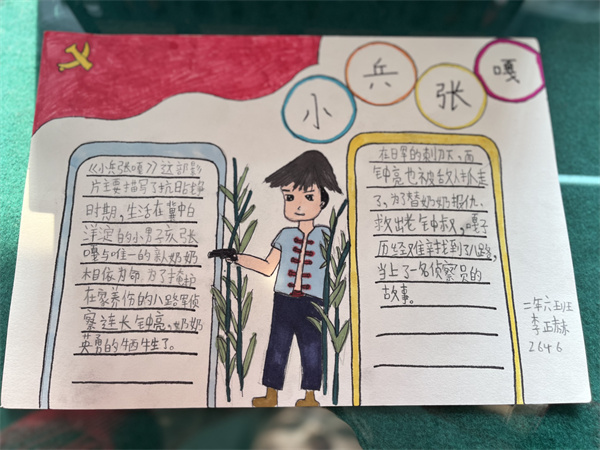 小兵张嘎
《小兵张嘎》这部影
片主要描写了抗日战争
时期,生活在冀中白
洋淀的小男孩张
嘎与唯一的亲奶奶
相依为命,为了掩护
在家养伤的八路军侦
察连长钟亮,奶奶
英勇的牺牲了。
在日军的刺刀下,而
钟亮也被敌人抓走
了,为了替奶奶报仇,
救出老钟叔,嘎子
历经艰辛找到了八路,
当上了一名侦察员的
故事。
二年六班
李正赫
2646